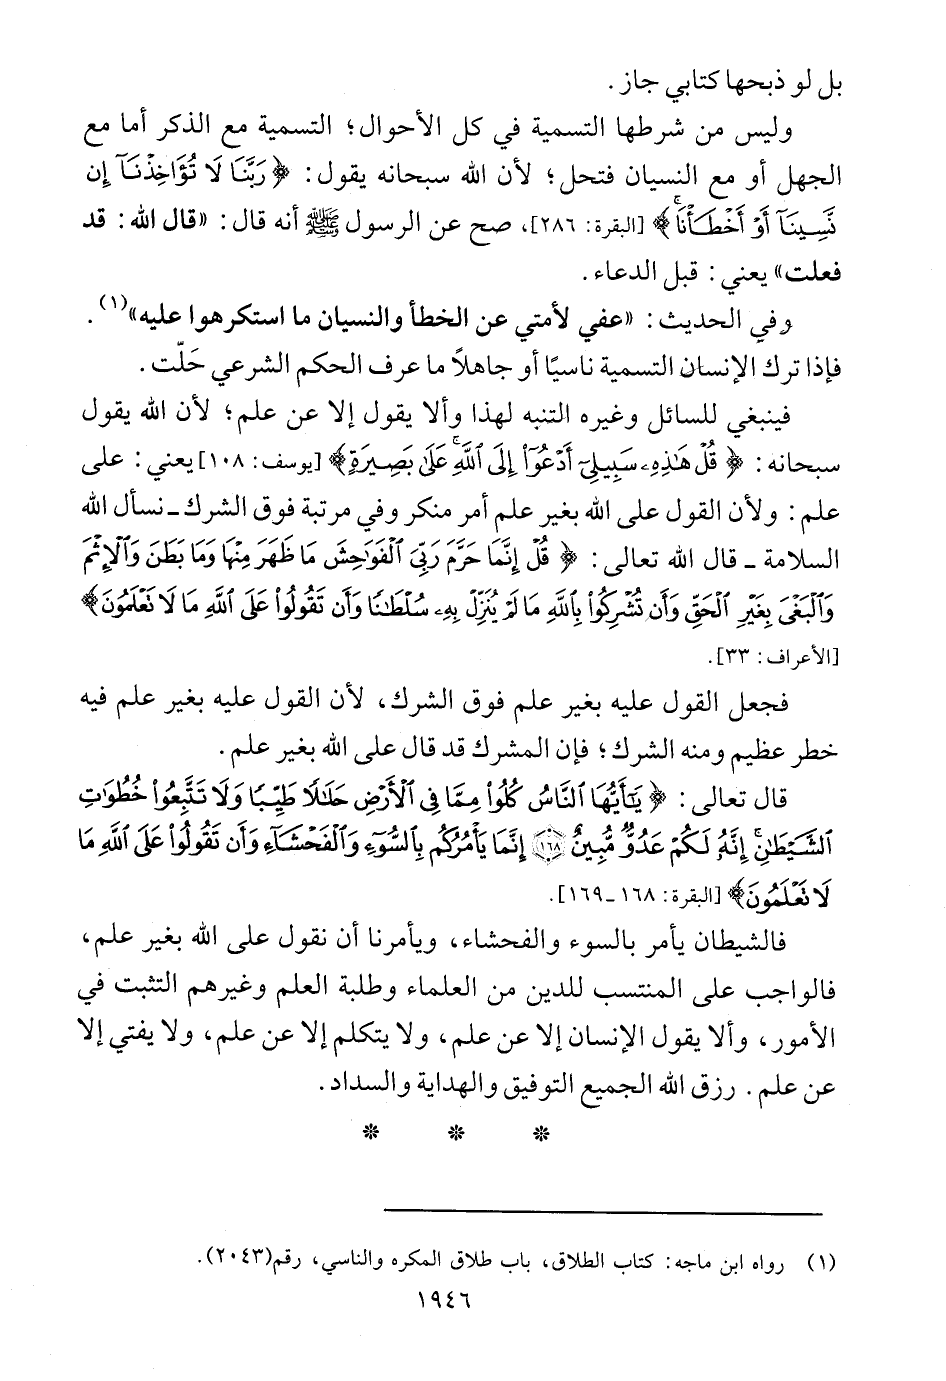 بل لو ذبحها كتابي جاز .
وليس من شرطها التسمية في كل الأحوال؛ التسمية مع الذكر أما مع
الجهل أو مع النسيان فتحل؛ لأن الله سبحانه يقول: ﴿رَبَّنَا لَا تُؤَاخِذْنَآ إِن
نَّسِينَآ أَوْ أَخْطَأْنَا﴾ [البقرة: ٢٨٦]، صح عن الرسول ﷺ أنه قال: «قال الله: قد
فعلت» يعني: قبل الدعاء.
وفي الحديث: «عفي لأمتي عن الخطأ والنسيان ما استكرهوا عليه»(١).
فإذا ترك الإنسان التسمية ناسيًا أو جاهلاً ما عرف الحكم الشرعي حَلّت.
فينبغي للسائل وغيره التنبه لهذا وألا يقول إلا عن علم؛ لأن الله يقول
سبحانه: ﴿قُلْ هَٰذِهِۦ سَبِيلِىٓ أَدْعُوٓا۟ إِلَى ٱللَّهِ ۚ عَلَىٰ بَصِيرَةٍ﴾ [يوسف: ١٠٨] يعني: على
علم: ولأن القول على الله بغير علم أمر منكر وفي مرتبة فوق الشرك ـ نسأل الله
السلامة ـ قال الله تعالى: ﴿قُلْ إِنَّمَا حَرَّمَ رَبِّىَ ٱلْفَوَٰحِشَ مَا ظَهَرَ مِنْهَا وَمَا بَطَنَ وَٱلْإِثْمَ
وَٱلْبَغْىَ بِغَيْرِ ٱلْحَقِّ وَأَن تُشْرِكُوا۟ بِٱللَّهِ مَا لَمْ يُنَزِّلْ بِهِۦ سُلْطَٰنًا وَأَن تَقُولُوا۟ عَلَى ٱللَّهِ مَا لَا تَعْلَمُونَ﴾
[الأعراف: ٣٣].
فجعل القول عليه بغير علم فوق الشرك، لأن القول عليه بغير علم فيه
خطر عظيم ومنه الشرك؛ فإن المشرك قد قال على الله بغير علم.
قال تعالى: ﴿يَٰٓأَيُّهَا ٱلنَّاسُ كُلُوا۟ مِمَّا فِى ٱلْأَرْضِ حَلَٰلًا طَيِّبًا وَلَا تَتَّبِعُوا۟ خُطُوَٰتِ
ٱلشَّيْطَٰنِ ۚ إِنَّهُۥ لَكُمْ عَدُوٌّ مُّبِينٌ ۝١٦٨ إِنَّمَا يَأْمُرُكُم بِٱلسُّوٓءِ وَٱلْفَحْشَآءِ وَأَن تَقُولُوا۟ عَلَى ٱللَّهِ مَا
لَا تَعْلَمُونَ﴾ [البقرة: ١٦٨ـ١٦٩].
فالشيطان يأمر بالسوء والفحشاء، ويأمرنا أن نقول على الله بغير علم،
فالواجب على المنتسب للدين من العلماء وطلبة العلم وغيرهم التثبت في
الأمور، وألا يقول الإنسان إلا عن علم، ولا يتكلم إلا عن علم، ولا يفتي إلا
عن علم. رزق الله الجميع التوفيق والهداية والسداد.
* * *
(١) رواه ابن ماجه: كتاب الطلاق، باب طلاق المكره والناسي، رقم(٢٠٤٣).
١٩٤٦